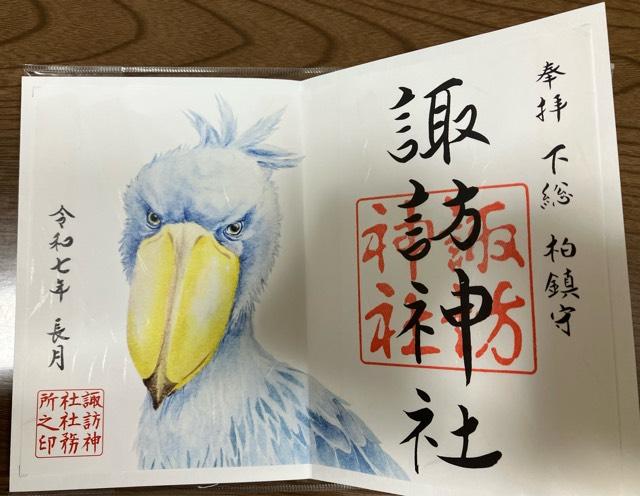 奉拝 下総 柏鎮守
諏訪神社
諏訪
神社
令和七年 長月
諏訪神
社社務
所之印